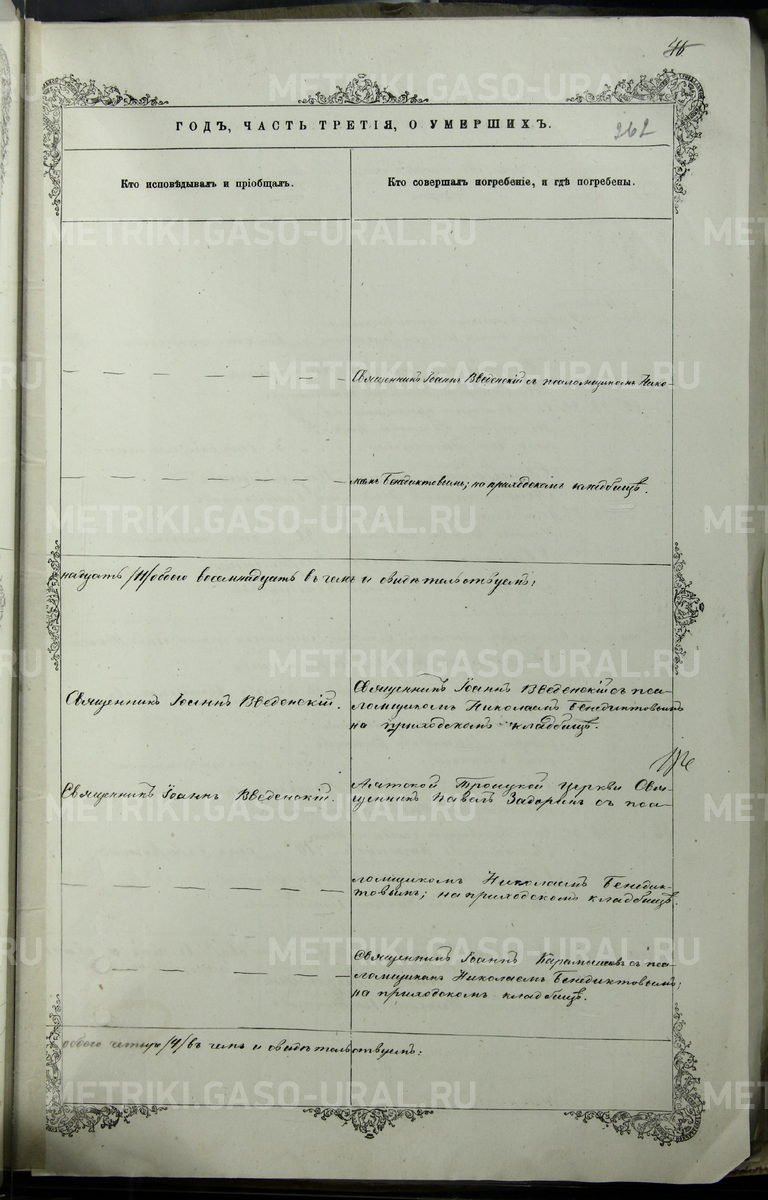 46
262
ГОДЪ, ЧАСТЬ ТРЕТІЯ, О УМЕРШИХЪ.
Кто исповѣдывалъ и пріобщалъ.
Кто совершалъ погребеніе, и гдѣ погребены.
Священникъ Іоаннъ Введенскій съ псаломщикомъ Нико-
лаемъ Бенедиктовымъ; на приходскомъ кладбищѣ.
надцать /11/ обоего восемнадцать въ чемъ и свидѣтельствуемъ:
Священникъ Іоаннъ Введенскій.
Священникъ Іоаннъ Введенскій съ пса-
ломщикомъ Николаемъ Бенедиктовымъ
на приходскомъ кладбищѣ.
Священникъ Іоаннъ Введенскій.
Троицкой церкви Свя-
щенникъ Павелъ Задоринъ съ пса-
ломщикомъ Николаемъ Бенедик-
товымъ; на приходскомъ кладбищѣ.
Священникъ Іоаннъ съ пса-
ломщикомъ Николаемъ Бенедиктовымъ;
на приходскомъ кладбищѣ.
обоего четыре /4/ въ чемъ и свидѣтельствуемъ:
METRIKI.GASO-URAL.RU